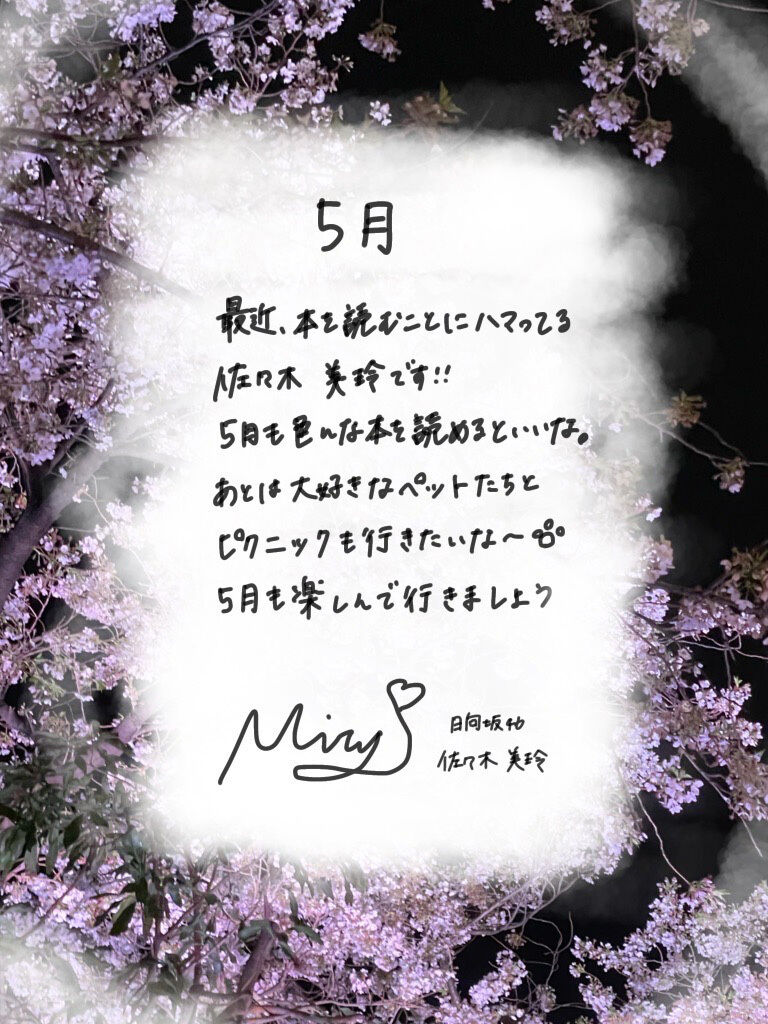 5月
最近、本を読むことにハマってる
佐々木 美玲です!!
5月も色んな本を読めるといいな。
あとは大好きなペットたちと
ピクニックも行きたいな〜
5月も楽しんで行きましょう
Miray
日向坂46
佐々木 美玲